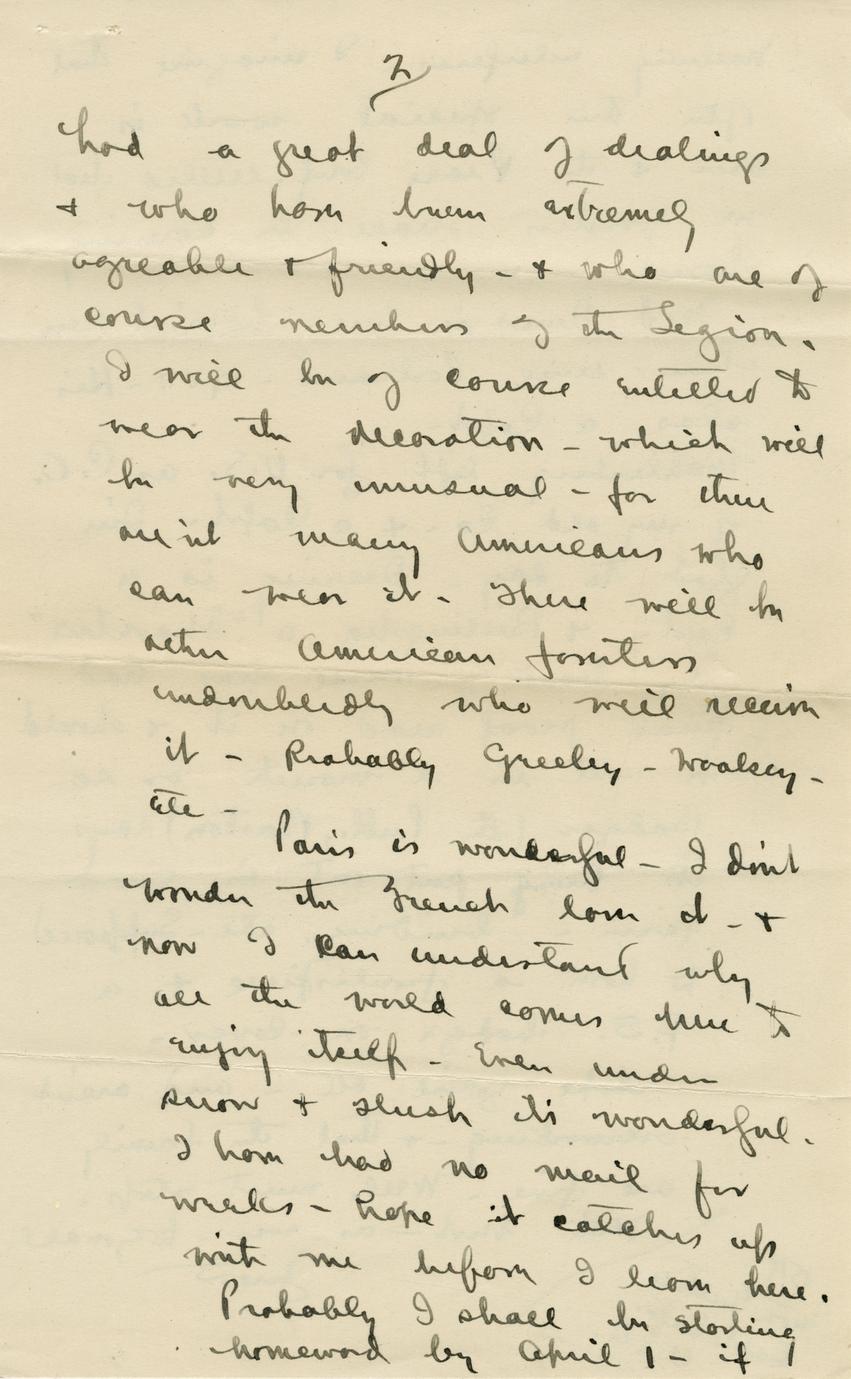 2
had a great deal of dealings
+ who have been extremely
agreable + friendly - + who are of
course members of the Legion.
I will be of course entitled to
wear the decoration - which will
be very unusual - for there
are'nt many Americans who
can wear it - There will be
other American foresters
undoubtedly who will receive
it - Probably Greeley - Woolsey -
etc -
Paris is wonderful - I don't
wonder the French love it - +
now I can understand why
all the world comes here to
enjoy itself - Even under
snow + slush it's wonderful.
I have had no mail for
weeks - hope it catches up
with me before I leave here.
Probably I shall be starting
homeward by April 1 - if